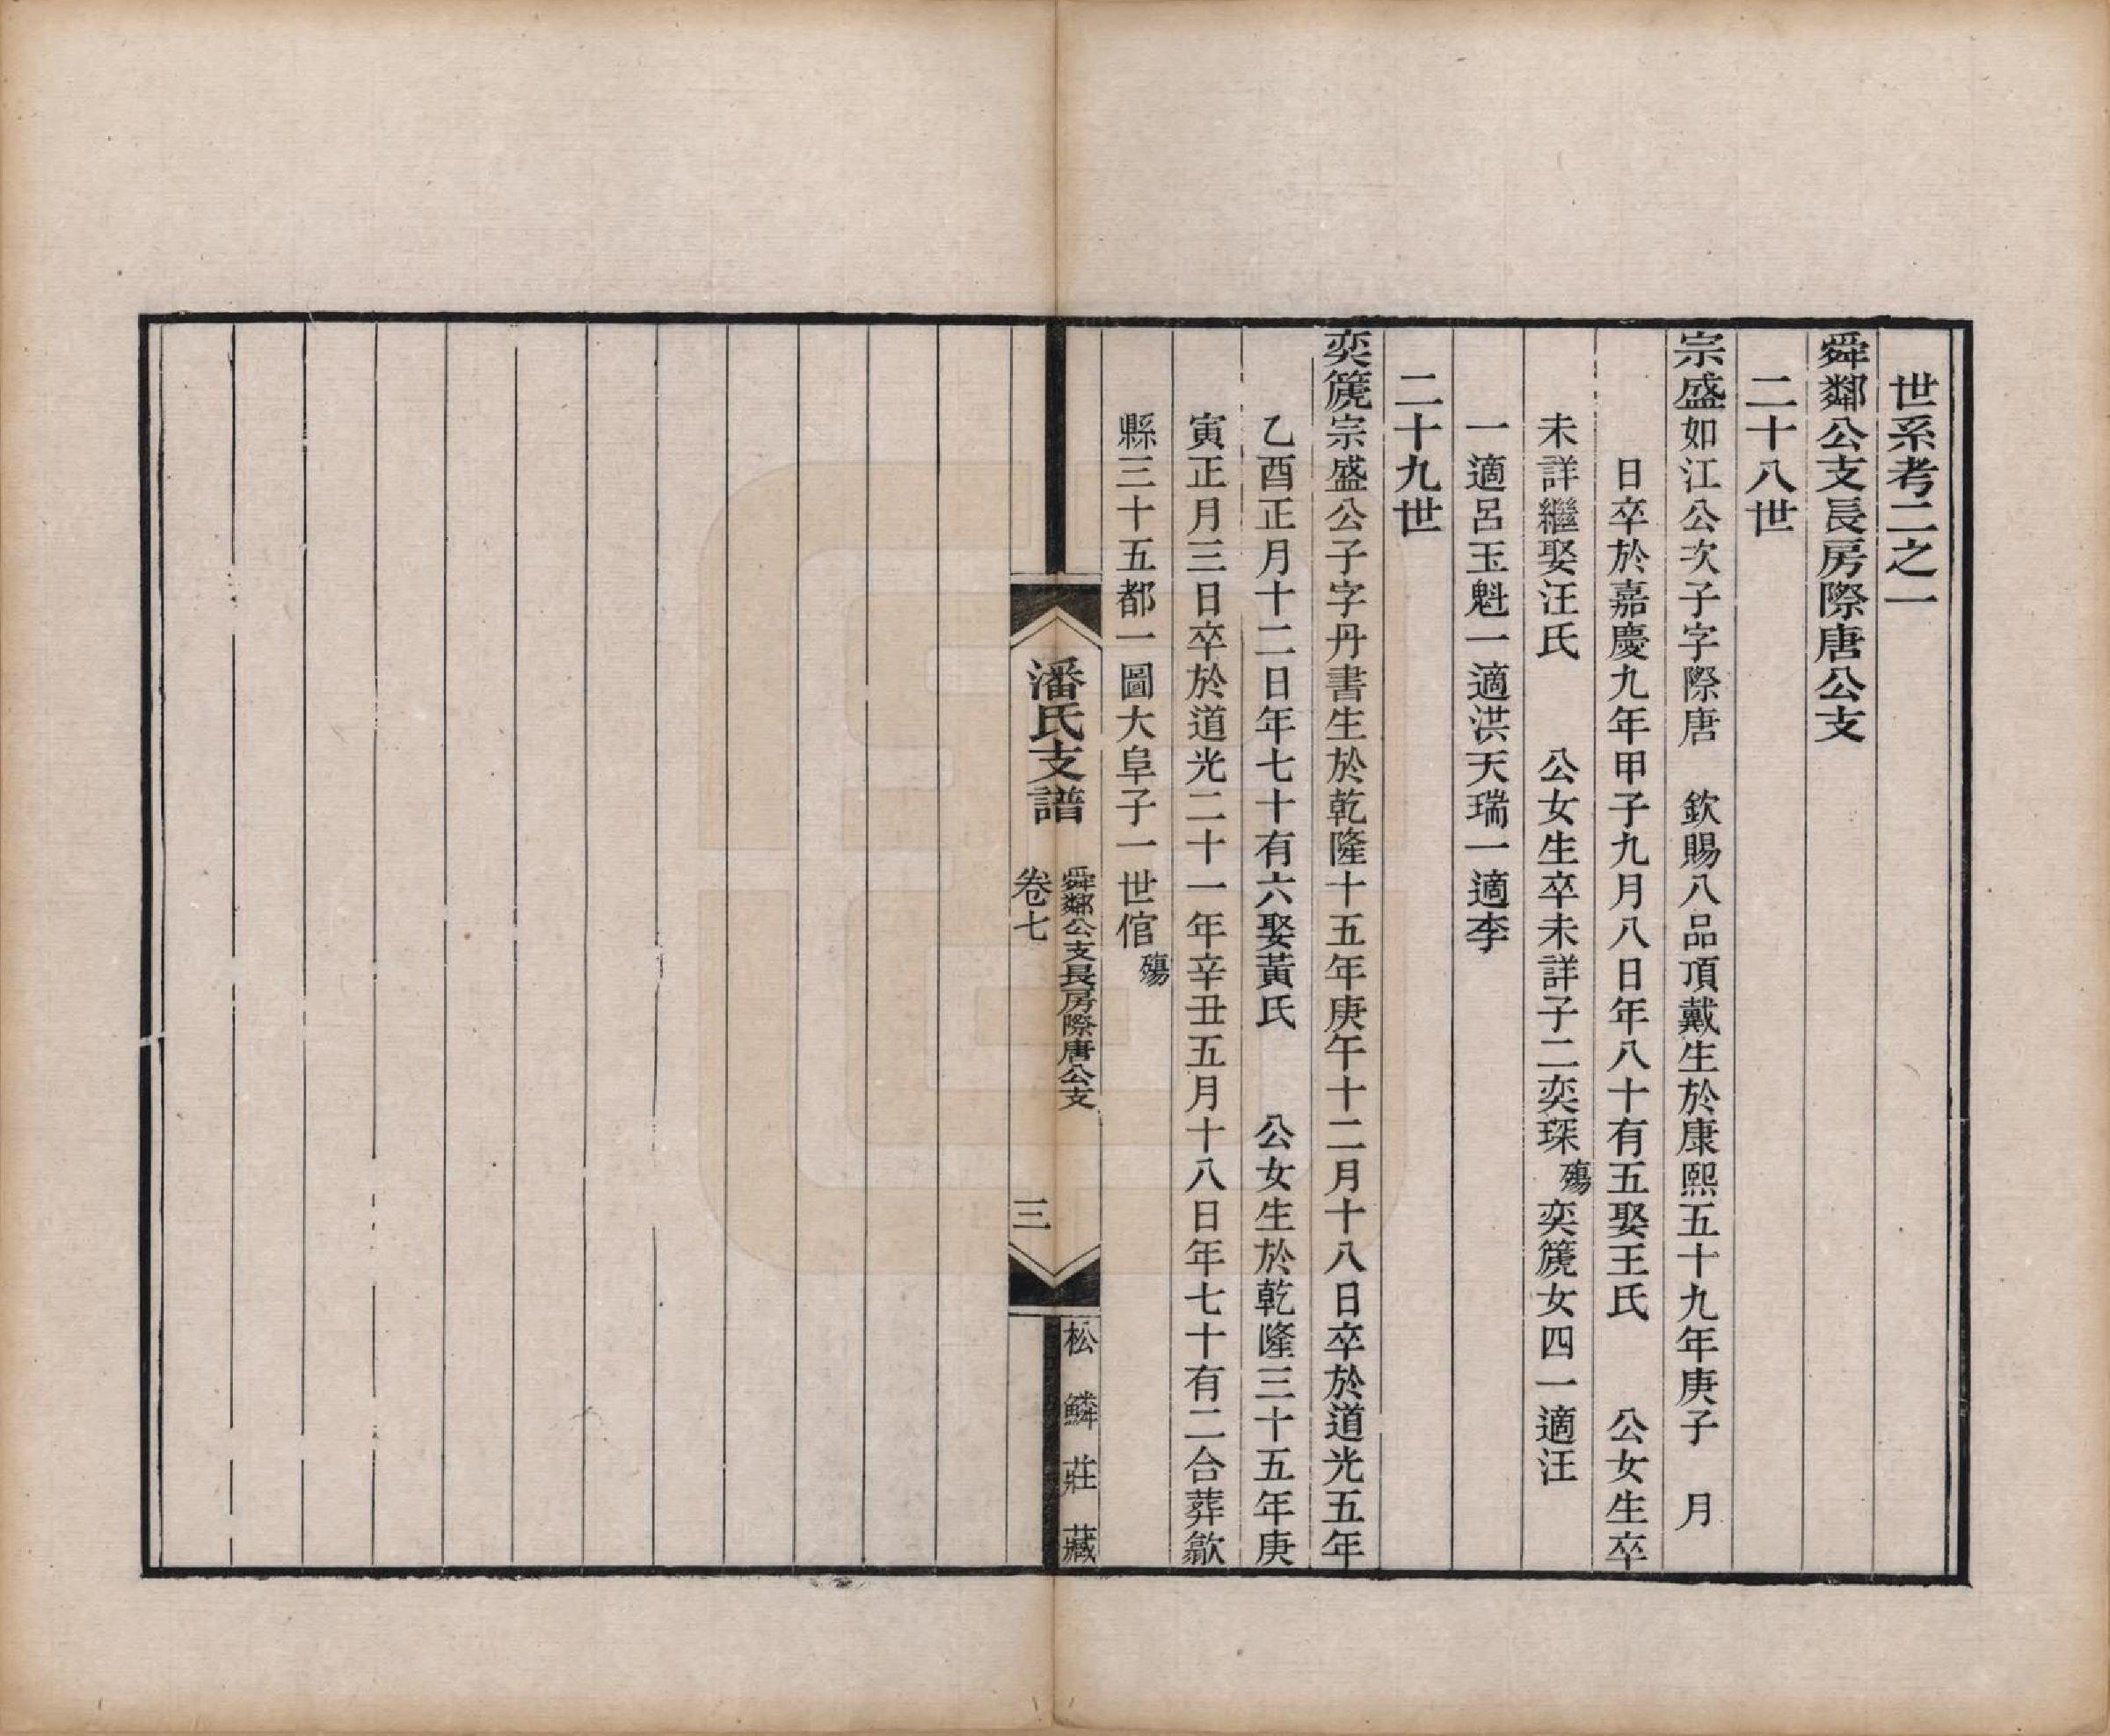 世系考二之一
舜鄰公支長房際唐公支
二十八世
宗盛如江公次子字際唐 欽賜八品頂戴生於康熙五十九年庚子 月
日卒於嘉慶九年甲子九月八日年八十有五娶王氏 公女生卒
未詳繼娶汪氏 公女生卒未詳子二奕琛殤奕篪女四一適汪
一適呂玉魁一適洪天瑞一適李
二十九世
奕篪宗盛公子字丹書生於乾隆十五年庚午十二月十八日卒於道光五年
乙酉正月十二日年七十有六娶黃氏 公女生於乾隆三十五年庚
寅正月三日卒於道光二十一年辛丑五月十八日年七十有二合葬歙
縣三十五都一圖大阜子一世倌殤
潘氏支譜
舜鄰公支長房際唐公支
卷七
三
松鱗莊藏